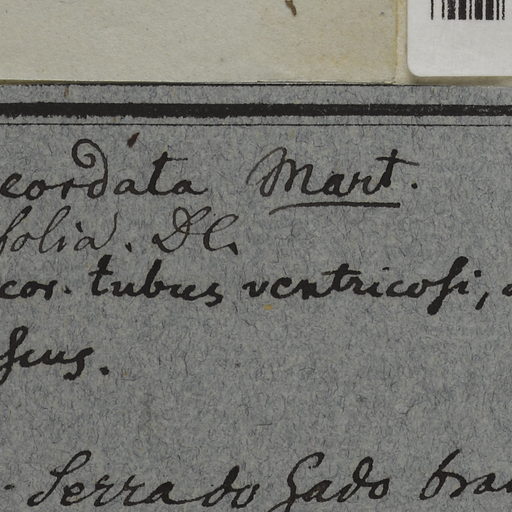 cordata Mart.
folia. DC.
cor. tubus ventricosi,
scus.
Serra do Gado bra